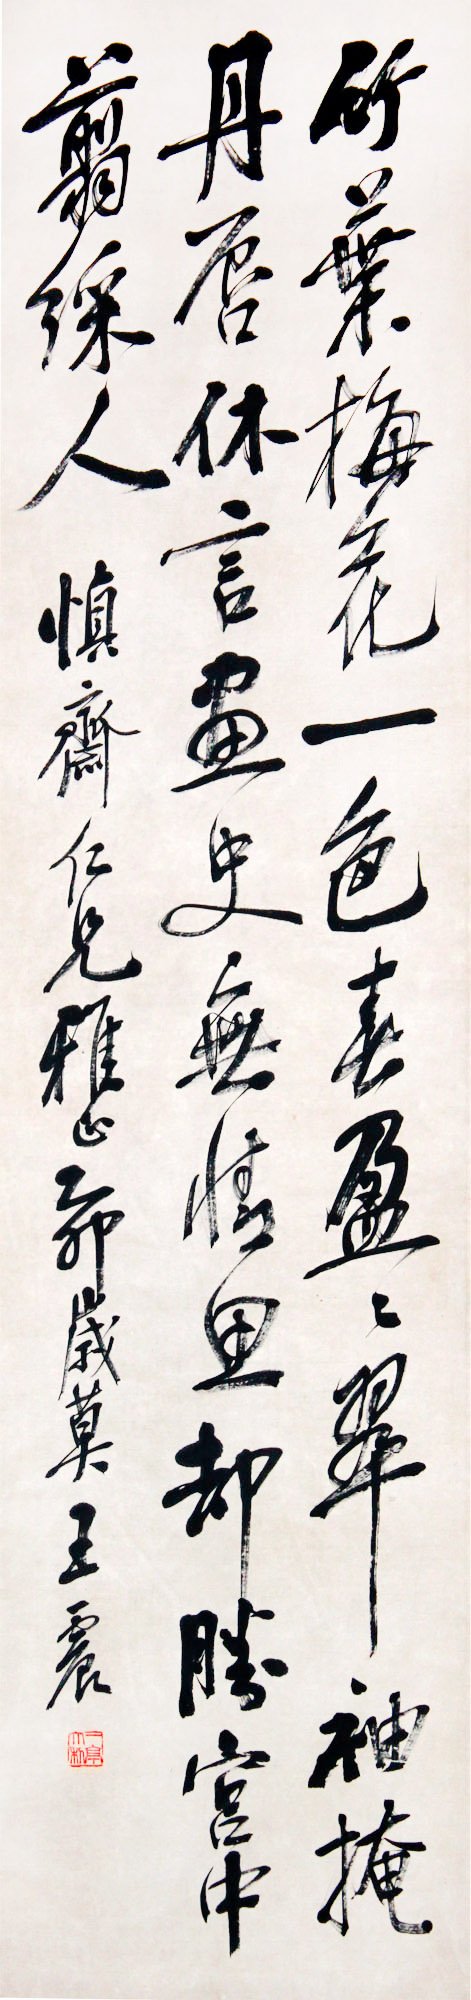 竹葉梅花一色春盈〻翠袖掩
丹唇休言畫史無情思却勝宮中
翦綵人 慎齋仁兄雅正 乙卯歲莫 王震